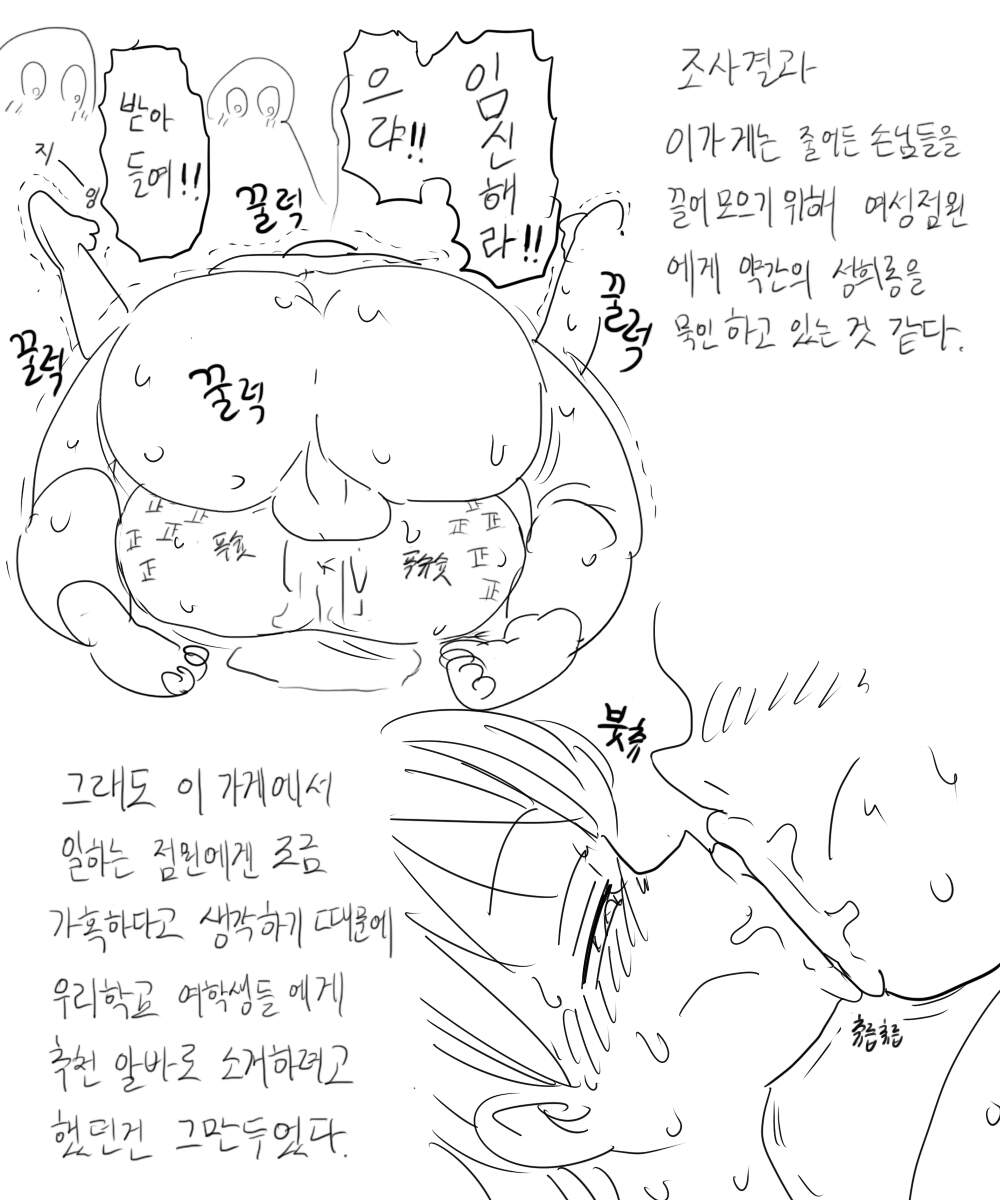 조사결과
이가게는 줄어든 손님들을
끌어모으기 위해 여성점원
에게 약간의 성희롱을
묵인 하고 있는 것 같다.
임신해라!!
으랴!!
받아
들여!!
꿀럭
꿀럭
꿀럭
꿀럭
正
正
正
正
正
正
正
正
正
正
푹슛
푸슈슛
붓츄
츄릅츄릅
그래도 이 가게에서
일하는 점원에겐 조금
가혹하다고 생각하기 때문에
우리학교 여학생들에게
추천 알바로 소개하려고
했던건 그만두었다.